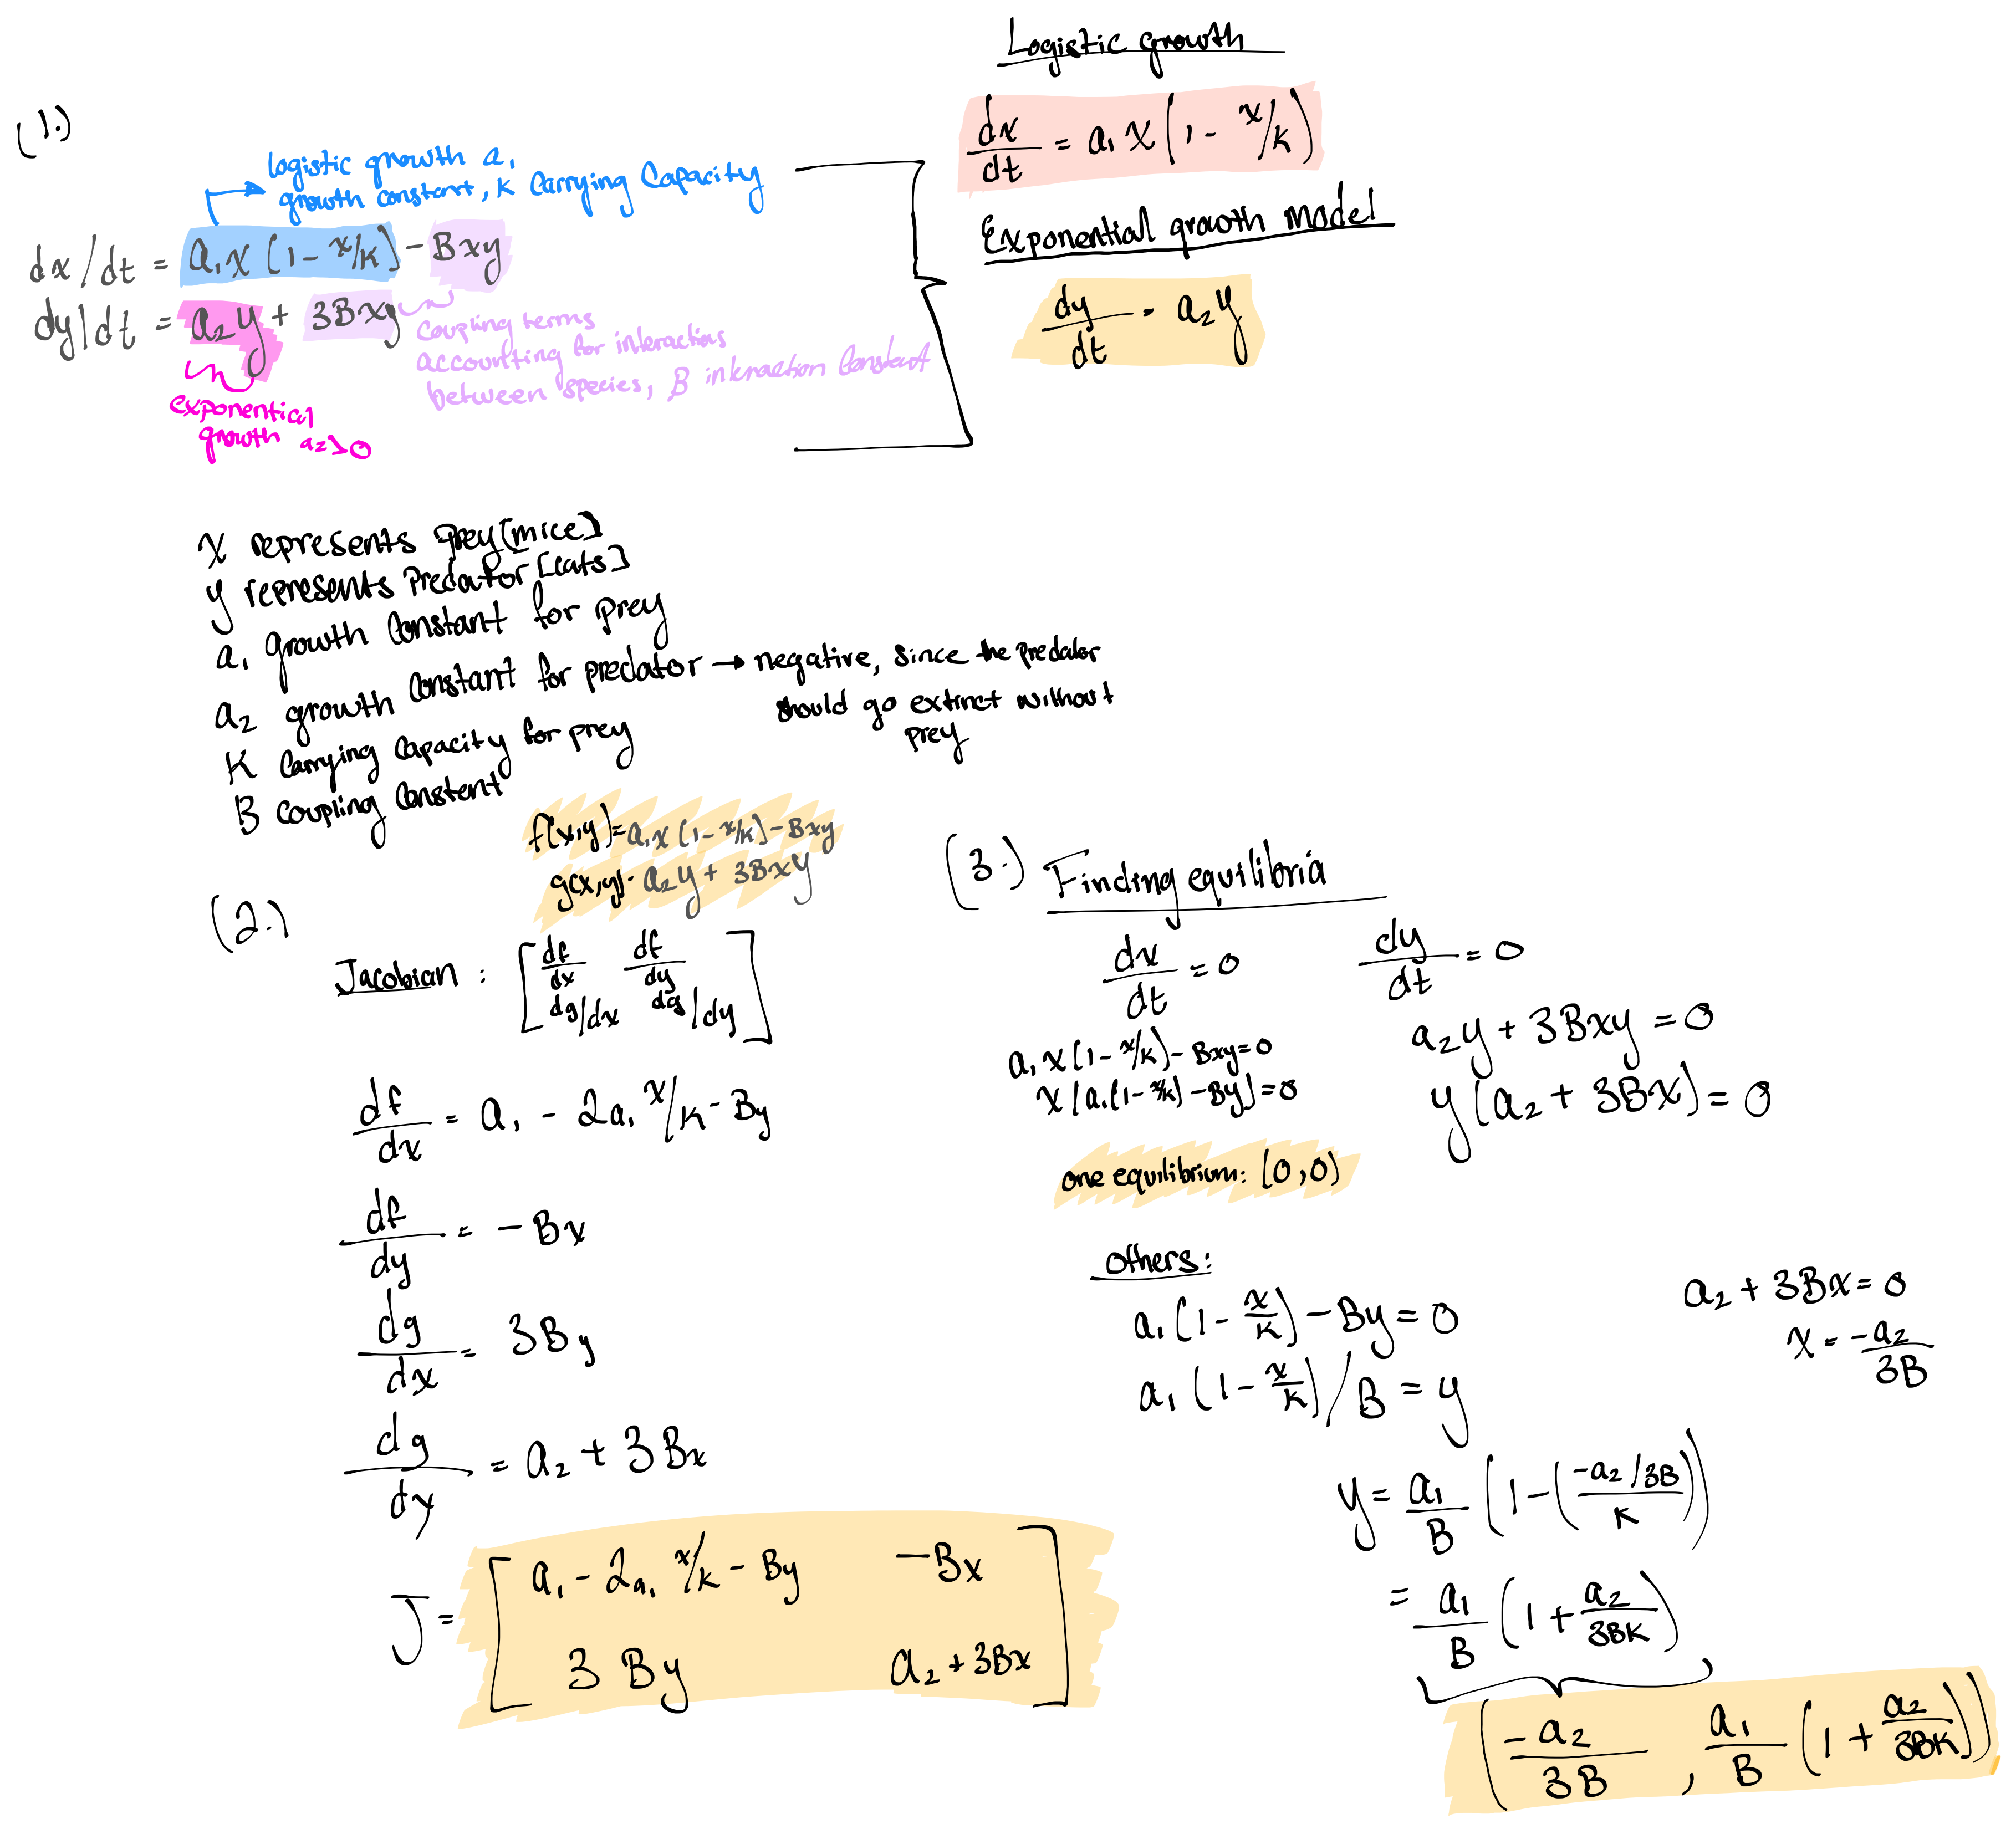 (1.)
logistic growth a₁
growth constant, K Carrying Capacity
dx/dt = a₁x (1-x/K) - Bxy
dy/dt = a₂y + 3Bxy
Coupling terms
accounting for interactions
between species, B interaction Constant
exponential
growth a₂>0
Logistic growth
dx/dt = a₁x (1 - x/K)
Exponential growth model
dy/dt = a₂y
x represents prey [mice]
y represents Predator [cats]
a₁ growth Constant for prey
a₂ growth Constant for predator → negative, since the predator
should go extinct without
prey
K Carrying Capacity for prey
B Coupling Constant
f(x,y) = a₁x (1-x/K) - Bxy
g(x,y) = a₂y + 3Bxy
(2.)
Jacobian : [df/dx df/dy
dg/dx dg/dy]
df/dx = a₁ - 2a₁ x/K - By
df/dy = -Bx
dg/dx = 3By
dg/dy = a₂ + 3Bx
J = [a₁ - 2a₁ x/K - By -Bx
3By a₂ + 3Bx]
(3.) Finding equilibria
dx/dt = 0
a₁x (1-x/K) - Bxy = 0
x (a₁(1-x/K) - By) = 0
dy/dt = 0
a₂y + 3Bxy = 0
y (a₂ + 3Bx) = 0
one equilibrium: (0,0)
others:
a₁ (1 - x/K) - By = 0
a₁ (1 - x/K) / B = y
a₂ + 3Bx = 0
x = -a₂/3B
y = a₁/B (1 - ((-a₂/3B)/K))
= a₁/B (1 + a₂/3BK)
(-a₂/3B , a₁/B (1 + a₂/3BK))